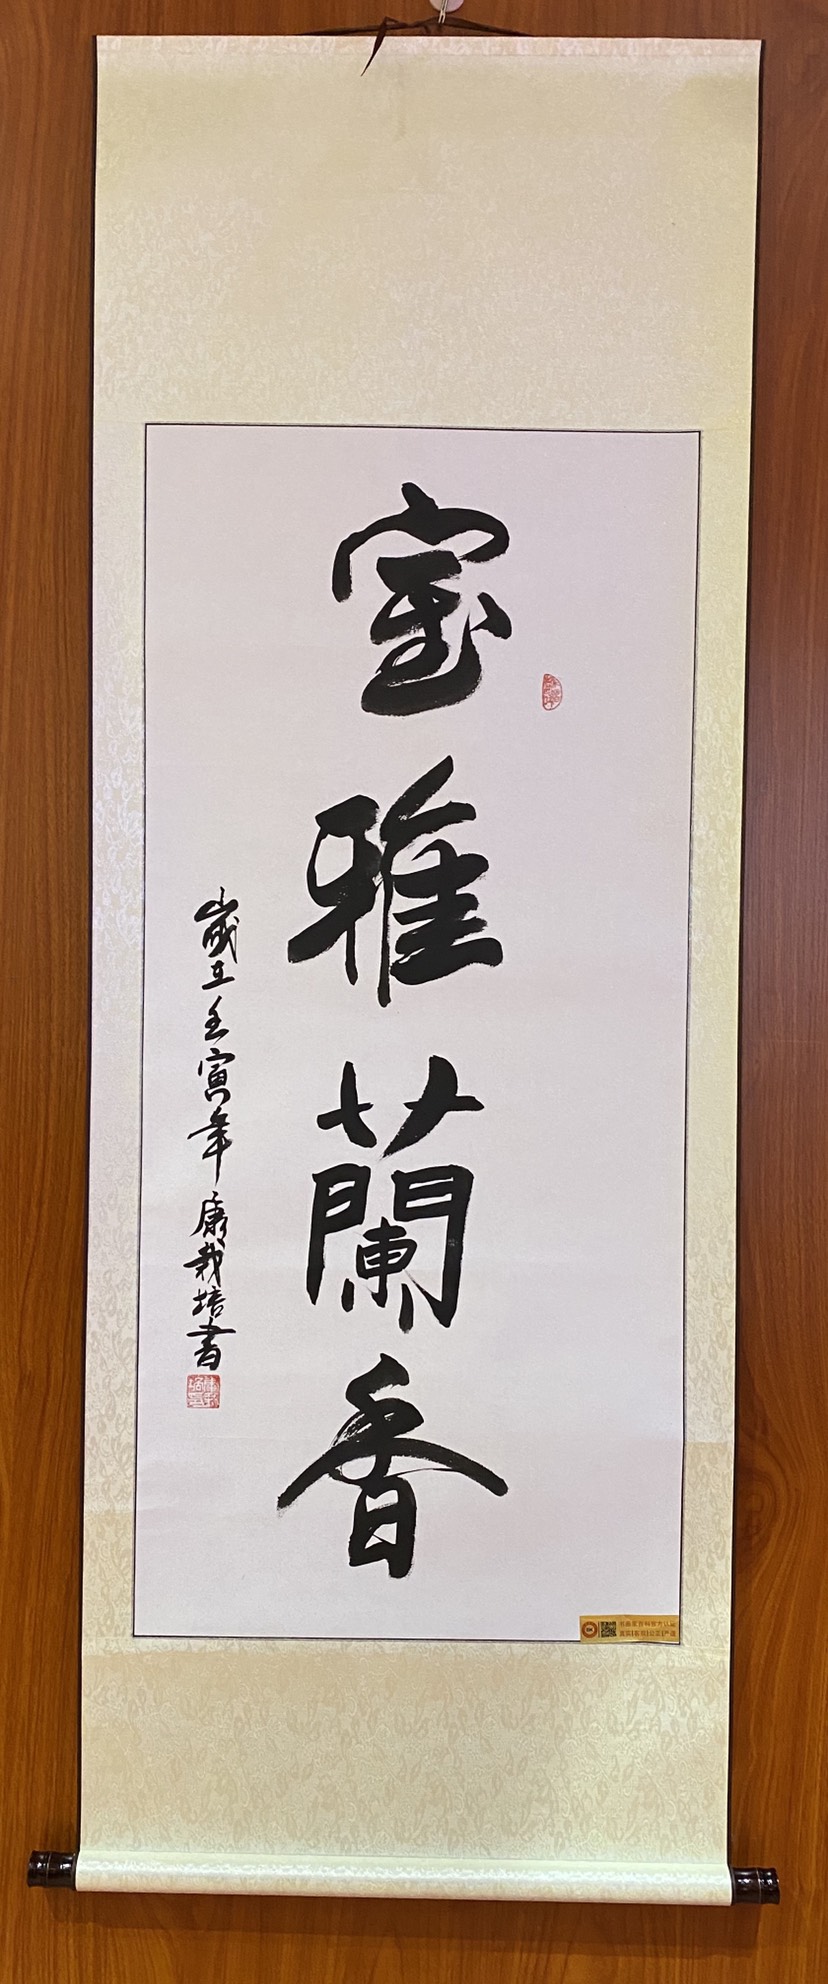 室雅蘭香
歲在壬寅年康栽培書